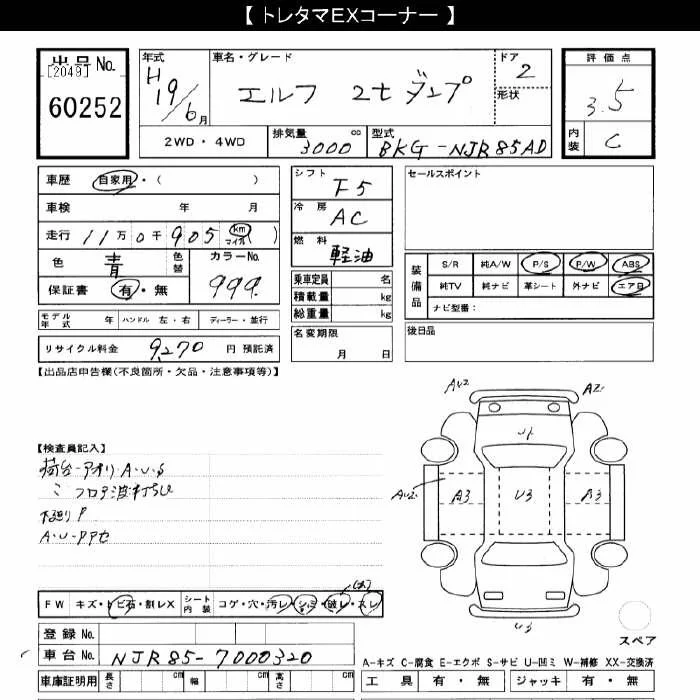 【 トレタマEXコーナー 】
出品No.
[2049]
60252
年式
H19/6月
車名・グレード
エルフ 2tダンプ
ドア
2
形状
評価点
3.5
内装
C
2WD・4WD
排気量 cc
3000
型式
BKG-NJR85AD
車歴 自家用・( )
車検 年 月
走行 11万0千905 km マイル )
色 青 色替
カラーNo.
999
保証書 有・無
シフト
F5
冷房
AC
燃料
軽油
乗車定員 名
積載量 kg
総重量 kg
セールスポイント
装備品
S/R 純A/W P/S P/W ABS
純TV 純ナビ 革シート 外ナビ エアB
ナビ型番:
モデル年式 年 ハンドル 左・右 ディーラー・並行
リサイクル料金 9,270 円 預託済
名変期限
月 日
後日品
【出品店申告欄(不良箇所・欠品・注意事項等)】
【検査員記入】
荷台-アオリ・A・U・S
〃 フロア波打ちU
下廻りP
A・U・PP七
AU2
A2
U1
AU2
A3
U3
A3
U3
スペア
FW キズ・トビ石・割レX
シート内装 コゲ・穴・汚レ・シミ・破レ・スレ
(大)
登録No.
車台No. NJR85-7000320
車庫証明用 長さ cm 幅 cm 高さ cm
A-キズ C-腐食 E-エクボ S-サビ U-凹ミ W-補修 XX-交換済
工具 有・無 ジャッキ 有・無